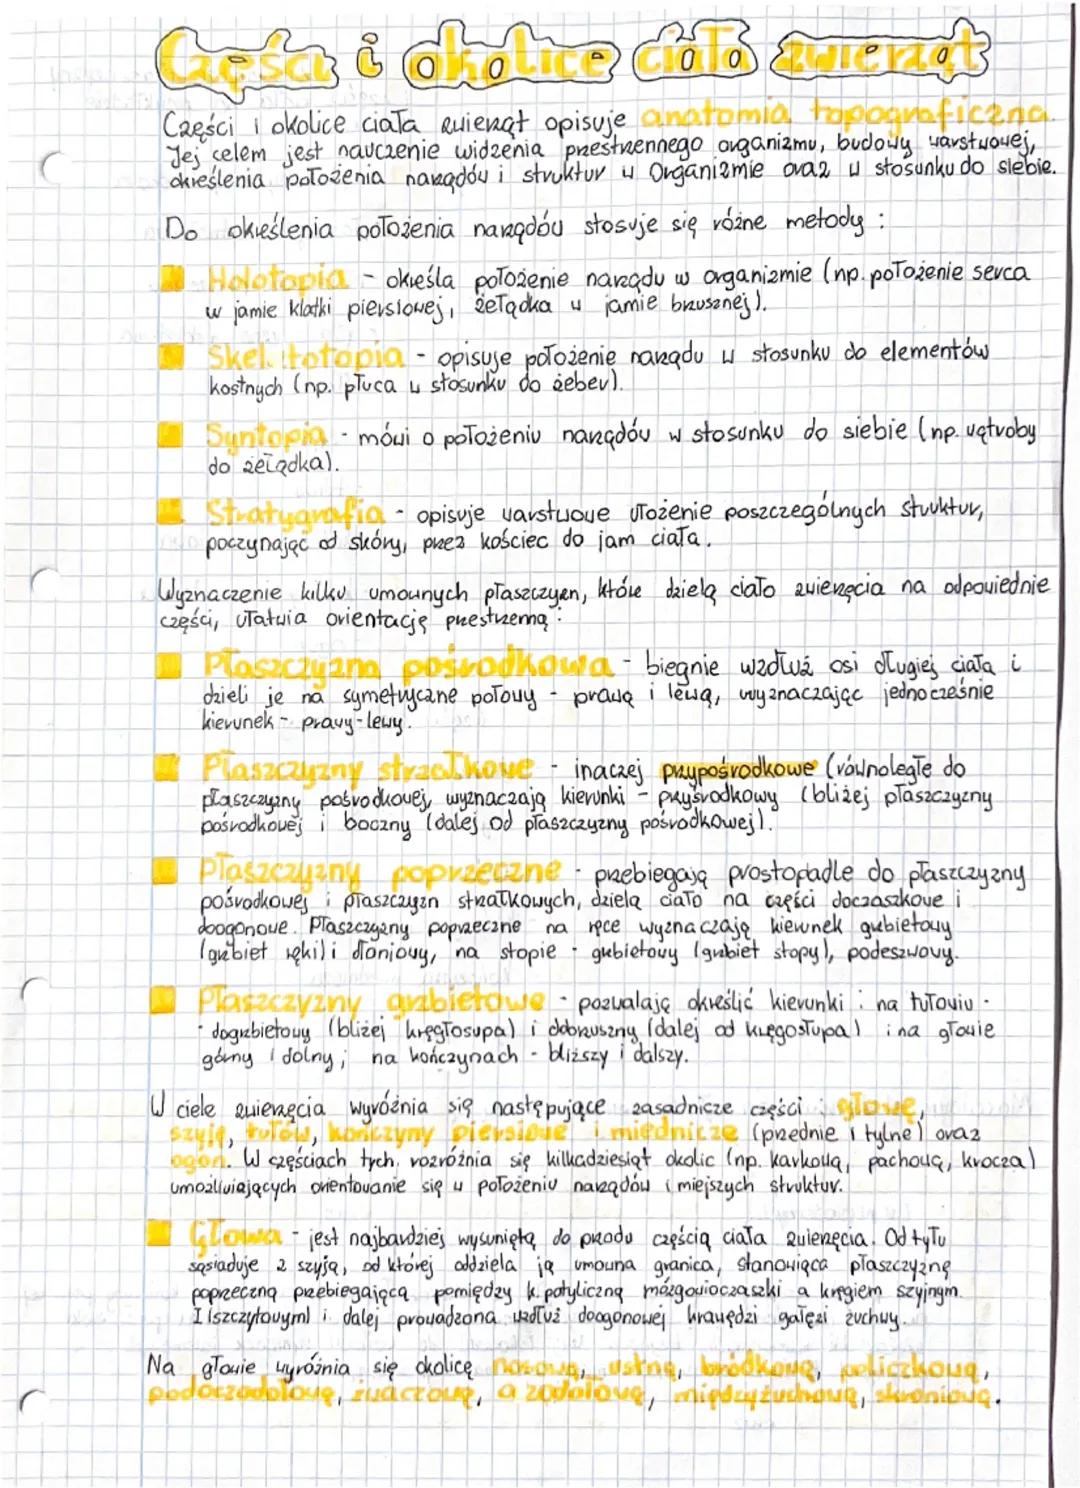 Części i okolice ciała zwierząt
Części i okolice ciała zwierząt opisuje anatomia topograficzna.
Jej celem jest nauczenie widzenia przestrzennego organizmu, budowy warstwowej,
określenia położenia narządów i struktur w Organizmie oraz w stosunku do siebie.
Do określenia położenia narządów stosuje się różne metody :
Holotopia - określa położenie narządu w organizmie (np. położenie serca
w jamie klatki piersiowej, żełądka w jamie brzusznej).
Skeletotopia - opisuje położenie narządu w stosunku do elementów
kostnych (np. płuca w stosunku do żeber).
Syntopia - mówi o położeniu narządów w stosunku do siebie (np. wątroby
do żełądka).
Stratygrafia - opisuje warstwowe ułożenie poszczególnych struktur,
poczynając od skóry, przez kościec do jam ciała.
Wyznaczenie kilku umownych płaszczyzn, które dzielą ciało zwierzęcia na odpowiednie
części, ułatwia orientację przestrzenną :
Płaszczyzna pośrodkowa - biegnie wzdłuż osi długiej ciała i
dzieli je na symetryczne połowy - prawą i lewą, wyznaczając jednocześnie
kierunek - prawy-lewy.
Płaszczyzny strzałkowe - inaczej przypośrodkowe (równoległe do
płaszczyzny pośrodkowej, wyznaczają kierunki - przyśrodkowy (bliżej płaszczyzny
pośrodkowej i boczny (dalej od płaszczyzny pośrodkowej).
Płaszczyzny poprzeczne - przebiegają prostopadle do płaszczyzny
pośrodkowej i płaszczyzn strzałkowych, dzielą ciało na części doczaszkowe i
doogonowe. Płaszczyzny poprzeczne na ręce wyznaczają kierunek grzbietowy
(grzbiet ręki) i dłoniowy, na stopie - grzbietowy (grzbiet stopy), podeszwowy.
Płaszczyzny grzbietowe - pozwalają określić kierunki : na tułowiu -
- dogrzbietowy (bliżej kręgłosupa) i dobrzuszny (dalej od kręgosłupa) i na głowie
górny i dolny ; na kończynach - bliższy i dalszy.
W ciele zwierzęcia wyróżnia się następujące zasadnicze części : głowę,
szyję, tułów, kończyny piersiowe i miednicze (przednie i tylne) oraz
ogon. W częściach tych rozróżnia się kilkadziesiąt okolic (np. karkową, pachową, krocza)
umożliwiających orientowanie się w położeniu narządów i miejszych struktur.
Głowa - jest najbardziej wysuniętą do przodu częścią ciała zwierzęcia. Od tyłu
sąsiaduje z szyją, od której oddziela ją umowna granica, stanowiąca płaszczyznę
poprzeczną przebiegającą pomiędzy k. potyliczną mózgowioczaszki a kręgiem szyjnym
I (szczytowym) i dalej prowadzona wzdłuż doogonowej krawędzi gałęzi żuchwy.
Na głowie wyróżnia się okolicę nosową, ustną, bródkową, policzkową,
podoczodołową, żwaczową, oczodołową, międzyżuchwową, skroniową.